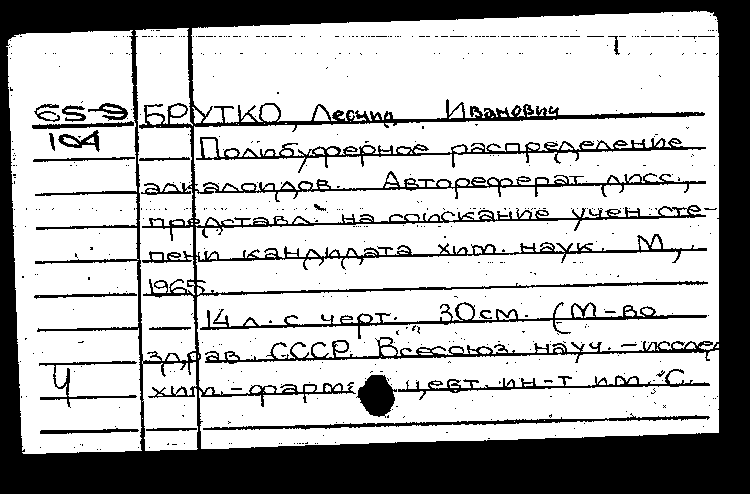 1
65-9 БРУТКО, Леонид Иванович
104 Полибуферное распределение
алкалоидов. Автореферат дисс.,
представл. на соискание учен сте-
пени кандидата хим. наук. М.,
1965.
14 л. с черт. 30см. (М-во
здрав. СССР. Всесоюз. науч.-исслед
Ч хим.-фармацевт. ин-т им. С.